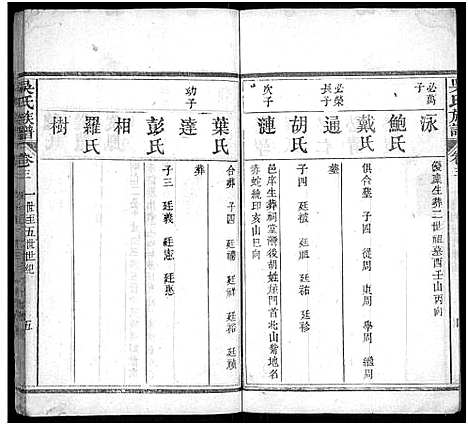 吳氏族譜
卷三
必萬子
泳
優庠生葬二世祖墓酉壬山丙向
鮑氏
戴氏
俱合墓 子四 從周 東周 學周 繼周
必榮長子
通
墓
胡氏
子四 廷 廷 廷祐 廷珍
次子
漣
邑庠生葬祠堂 後胡姓 門首北山 地名
葬蛇 印亥山巳向
葉氏
合葬 子四 廷 廷祥 廷裕 廷
幼子
達
葬
彭氏
子三 廷義 廷憲 廷惠
相
羅氏
樹
吳氏族譜
卷三
一世至五世世紀
五